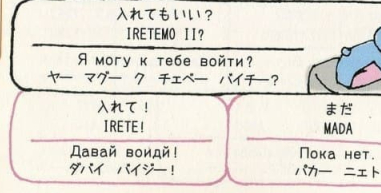 入れてもいい?
IRETEMO II?
Я могу к тебе войти?
ヤー マグー ク チェベー バイチー?
入れて!
IRETE!
Давай воидй!
ダバイ バイジー!
まだ
MADA
Пока нет.
パカー ニェト